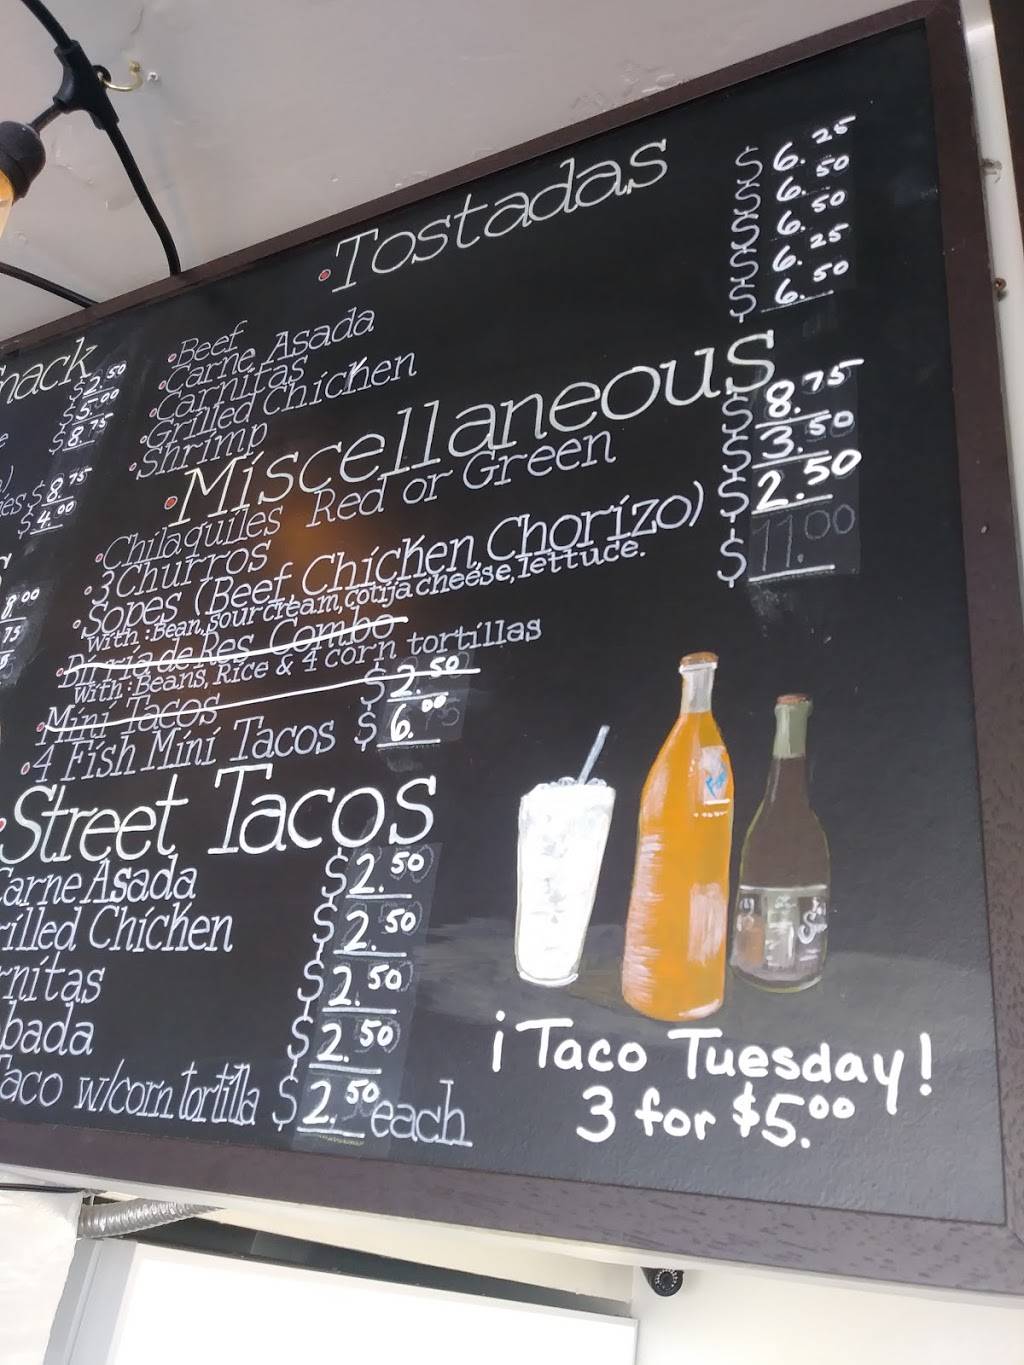 Tostadas
Beef $6.25
Carne Asada $6.50
Carnitas $6.50
Grilled Chicken $6.25
Shrimp $6.50
Miscellaneous
Chilaquiles Red or Green $8.75
3 Churros $3.50
Sopes (Beef, Chicken, Chorizo) $2.50
with: Bean, sour cream, cotija cheese, lettuce.
Birria de Res Combo $11.00
With: Beans, Rice & 4 corn tortillas
Mini Tacos $2.50
4 Fish Mini Tacos $6.00
Street Tacos
Carne Asada $2.50
rilled Chicken $2.50
rnitas $2.50
bada $2.50
Taco w/corn tortilla $2.50 each
nack
$2.50
$5.00
$8.75
$8.75
$4.00
8.00
¡Taco Tuesday!
3 for $5.00